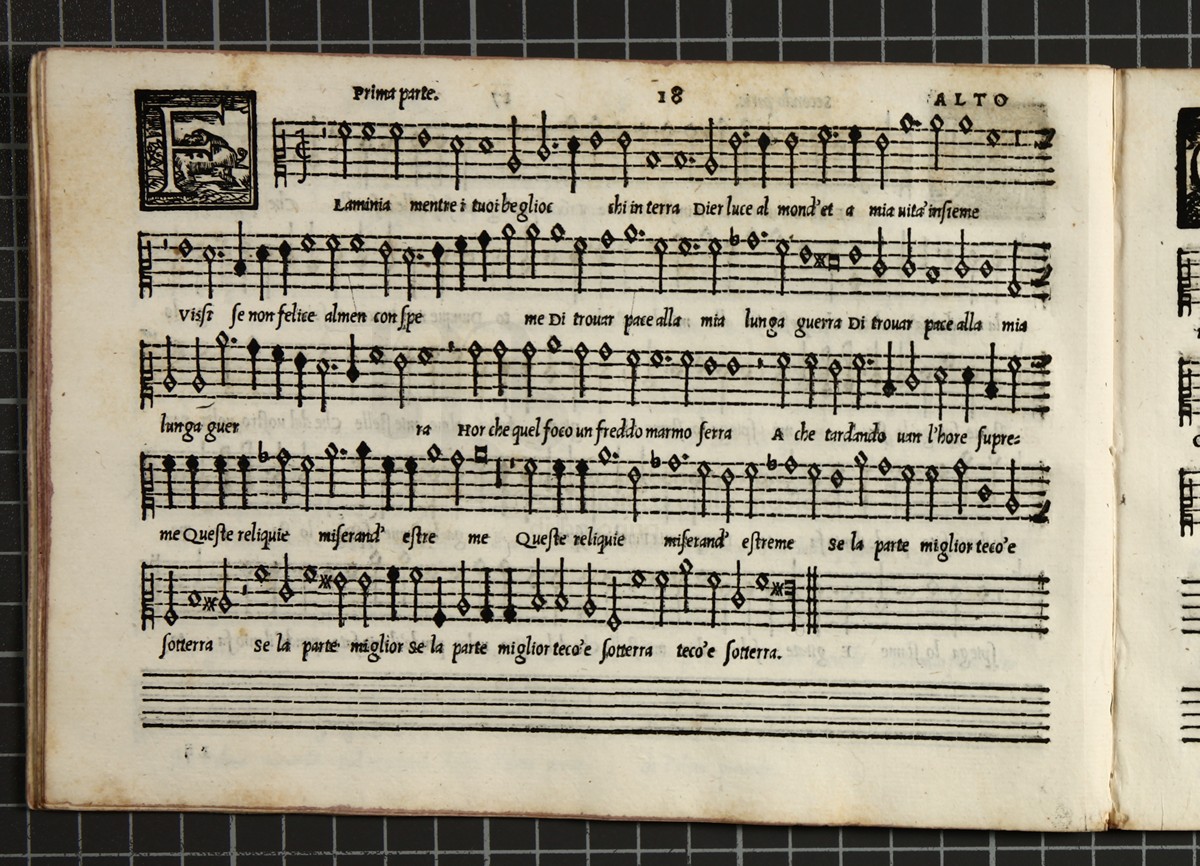 Prima parte. 18 ALTO
FLaminia mentre i tuoi beglioc chi in terra Dier luce al mond'et a mia uita'insieme
Vissi se non felice almen con spe me Di trouar pace alla mia lunga guerra Di trouar pace alla mia
lunga guer ra Hor che quel foco un freddo marmo serra A che tardando uan l'hore supre=
me Queste reliquie miserand' estre me Queste reliquie miserand' estreme Se la parte miglior teco'e
sotterra Se la parte miglior Se la parte miglior teco'e sotterra teco'e sotterra.